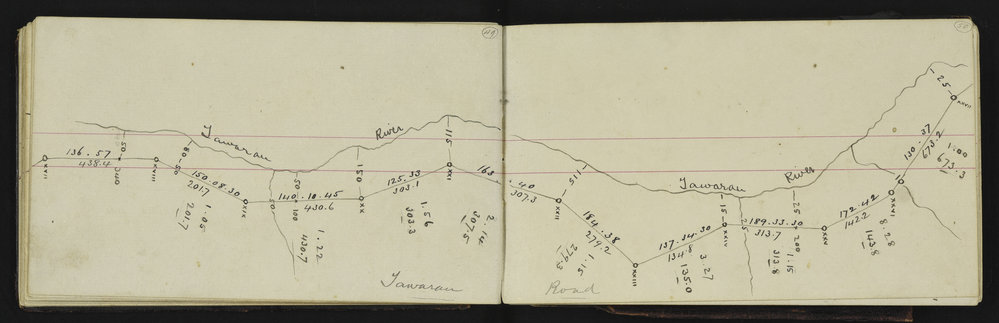 49
Tawarau
River
136.57
438.4
XVII
XVIII
50
340
80
50
150.08.30
201.7
1.05
201.7
XIX
50
140.10.45
430.6
100
1.22
430.7
150
XX
125.33
303.1
1.56
303.3
115
XXI
163
2.14
307.5
Tawarau
50
.40
307.3
XXII
115
184.38
279.2
1.15
279.3
XXIII
137.34.30
134.8
3.27
135.0
Tawarau
River
15
XXIV
25
189.33.30
313.7
25
200
1.15
313.8
XXV
172.42
142.2
8.28
143.8
XXVI
130.37
673.2
1.00
673.3
25
XXVII
Road